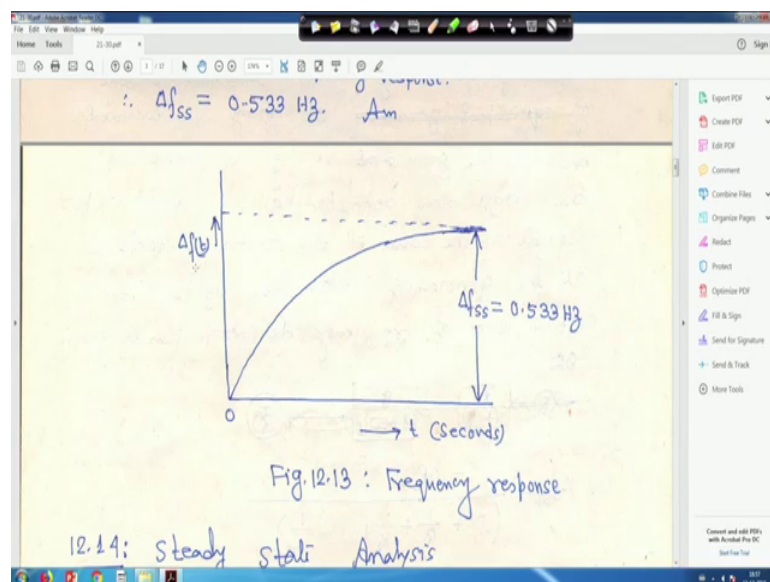 21-30.pdf - Adobe Acrobat Reader DC
File Edit View Window Help
Home Tools 21-30.pdf × Sign
1 / 17
g response.
∴ Δfss = 0.533 Hz. Am
Δf(t)
Δfss = 0.533 Hz
0
→ t (seconds)
Fig. 12.13 : Frequency response
12.14: Steady State Analysis
Export PDF
Create PDF
Edit PDF
Comment
Combine Files
Organize Pages
Redact
Protect
Optimize PDF
Fill & Sign
Send for Signature
Send & Track
More Tools
Convert and edit PDFs
with Acrobat Pro DC
Start Free Trial